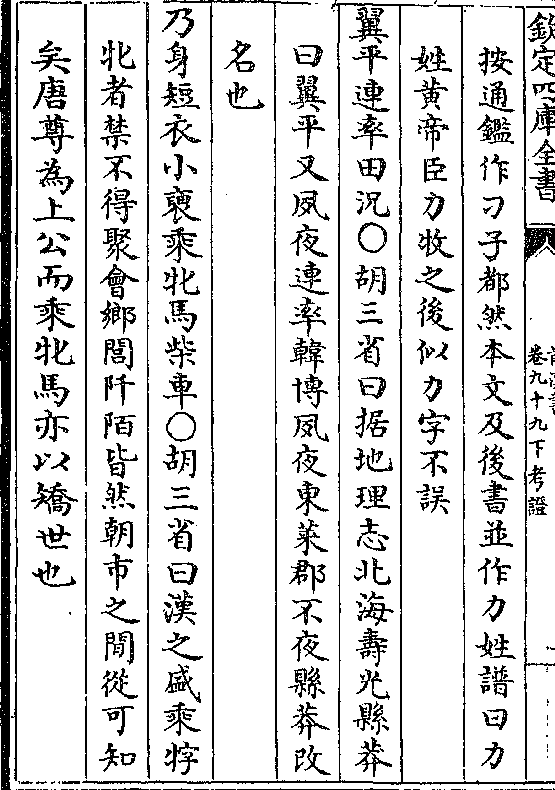 欽定四庫全書
卷九十九下考證
按通鑑作刁子都然本文及後書並作力姓譜曰力
姓黄帝臣力牧之後似力字不誤
翼平連率田況○胡三省曰据地理志北海壽光縣莽
曰翼平又夙夜連率韓博夙夜東萊郡不夜縣莽改
名也
乃身短衣小褏乘牝馬柴車○胡三省曰漢之盛乘牸
牝者禁不得聚會鄉閭阡陌皆然朝市之間從可知
矣唐尊為上公而乘牝馬亦以矯世也